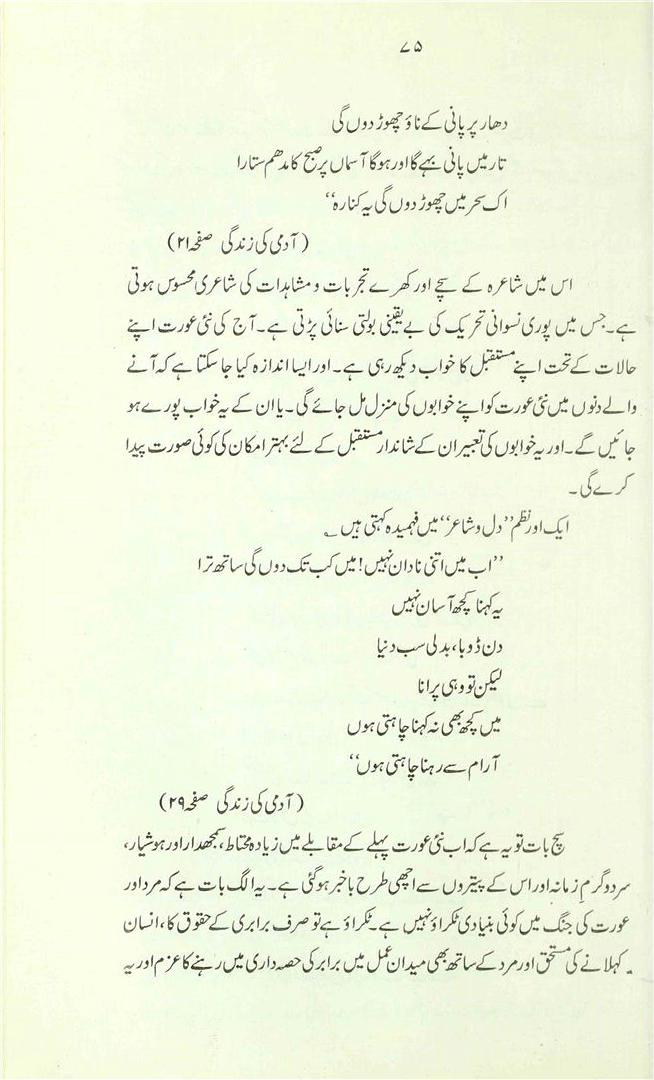 ۷۵
دھار پر پانی کے ناؤ چھوڑ دوں گی
تار میں پانی بہے گا اور ہوگا آسماں پر صبح کا مدھم ستارا
اک سحر میں چھوڑ دوں گی یہ کنارہ‘‘
(آدمی کی زندگی صفحہ ۲۱)
اس میں شاعرہ کے سچے اور کھرے تجربات و مشاہدات کی شاعری محسوس ہوتی
ہے۔ جس میں پوری نسوانی تحریک کی بے یقینی بولتی سنائی پڑتی ہے۔ آج کی نئی عورت اپنے
حالات کے تحت اپنے مستقبل کا خواب دیکھ رہی ہے۔ اور ایسا اندازہ کیا جا سکتا ہے کہ آنے
والے دنوں میں نئی عورت کو اپنے خوابوں کی منزل مل جائے گی۔ یا ان کے یہ خواب پورے ہو
جائیں گے۔ اور یہ خوابوں کی تعبیر ان کے شاندار مستقبل کے لئے بہتر امکان کی کوئی صورت پیدا
کرے گی۔
ایک اور نظم ’’دل و شاعر‘‘ میں فہمیدہ کہتی ہیں ؂
’’اب میں اتنی نادان نہیں! میں کب تک دوں گی ساتھ ترا
یہ کہنا کچھ آسان نہیں
دن ڈوبا، بدلی سب دنیا
لیکن تو وہی پرانا
میں کچھ بھی نہ کہنا چاہتی ہوں
آرام سے رہنا چاہتی ہوں‘‘
(آدمی کی زندگی صفحہ ۲۹)
سچ بات تو یہ ہے کہ اب نئی عورت پہلے کے مقابلے میں زیادہ محتاط، سمجھدار اور ہوشیار،
سرد و گرمِ زمانہ اور اس کے پیتروں سے اچھی طرح باخبر ہوگئی ہے۔ یہ الگ بات ہے کہ مرد اور
عورت کی جنگ میں کوئی بنیادی ٹکراؤ نہیں ہے۔ ٹکراؤ ہے تو صرف برابری کے حقوق کا، انسان
کہلانے کی مستحق اور مرد کے ساتھ بھی میدان عمل میں برابر کی حصہ داری میں رہنے کا عزم اور یہ